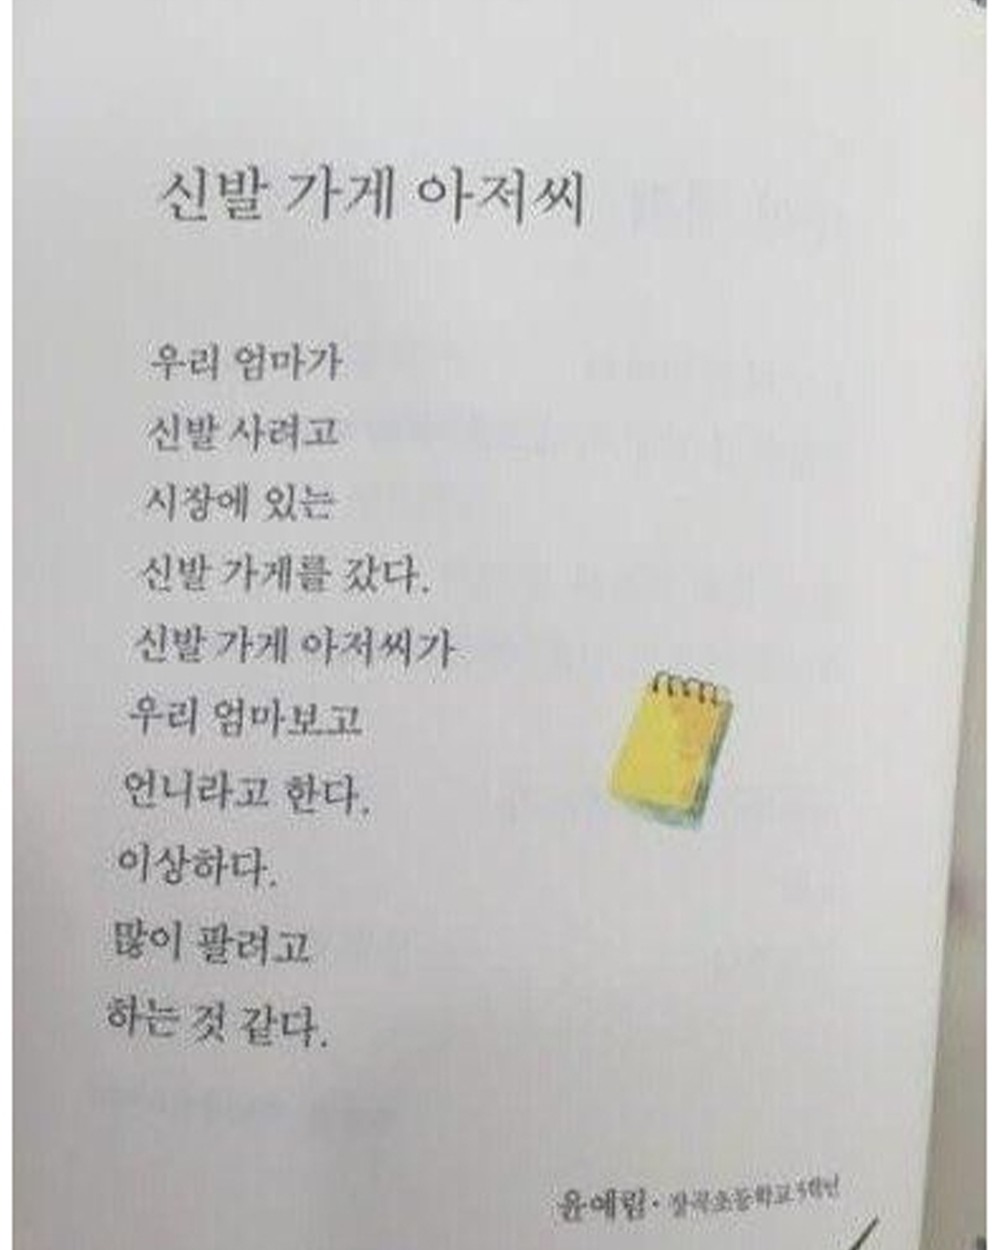 신발 가게 아저씨
우리 엄마가
신발 사려고
시장에 있는
신발 가게를 갔다.
신발 가게 아저씨가
우리 엄마보고
언니라고 한다.
이상하다.
많이 팔려고
하는 것 같다.
윤예림· 장곡초등학교 5학년